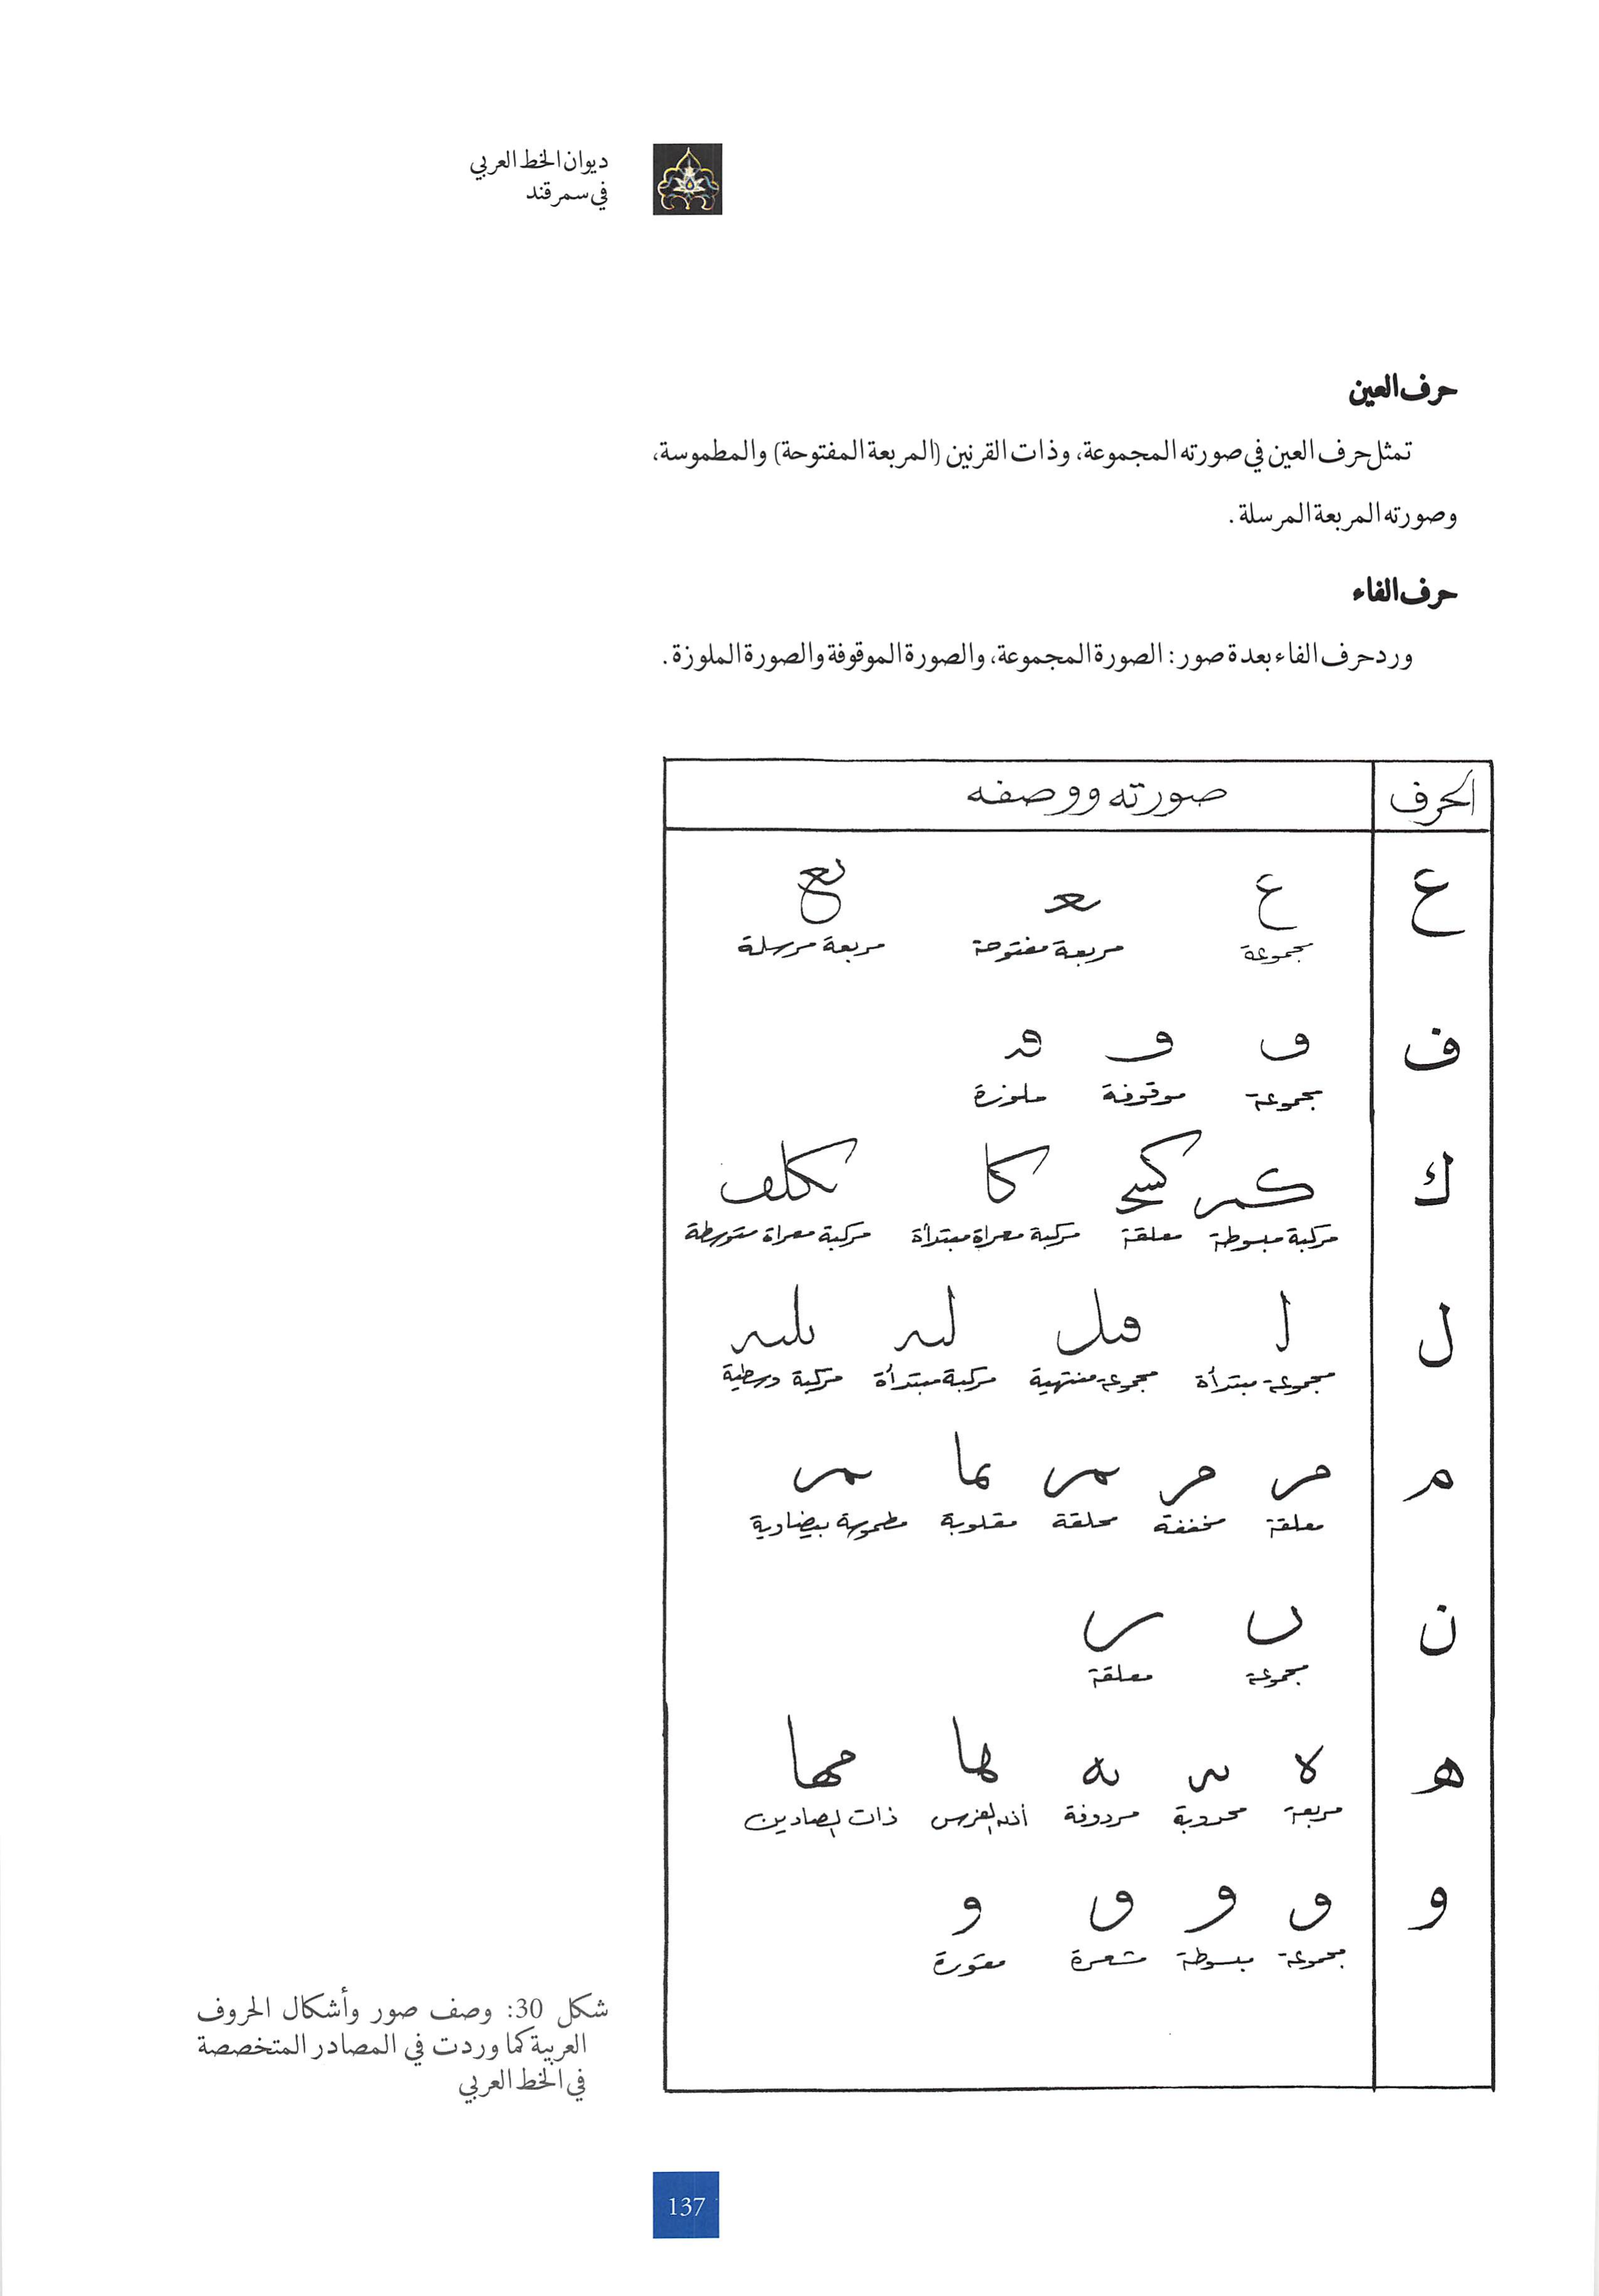 ديوان الخط العربي
في سمرقند
حرف العين
تمثل حرف العين في صورته المجموعة، وذات القرنين (المربعة المفتوحة) والمطموسة،
وصورته المربعة المرسلة.
حرف الفاء
ورد حرف الفاء بعدة صور: الصورة المجموعة، والصورة الموقوفة والصورة الملوزة.
الحرف صورته ووصفه
ع ع ـعـ ـع
مجموعة مربعة مفتوحة مربعة مرسلة
ف
مجموعة موقوفة ملوزة
ك كا
مركبة مبسوطة معلقة مركبة معراة مبتدأة مركبة معراة متوسطة
ل
مجموعة مبتدأة مجموعة منتهية مركبة مبتدأة مركبة وسطية
م م م
معلقة مخففة محلقة مقلوبة مطموسة بيضاوية
ن ں
مجموعة معلقة
ه ه ـه ها مها
مربعة محدوبة مردوفة أذن الفرس ذات الصادين
و و و و و
مجموعة مبسوطة مشعرة مقورة
شكل 30: وصف صور وأشكال الحروف
العربية كما وردت في المصادر المتخصصة
في الخط العربي
137